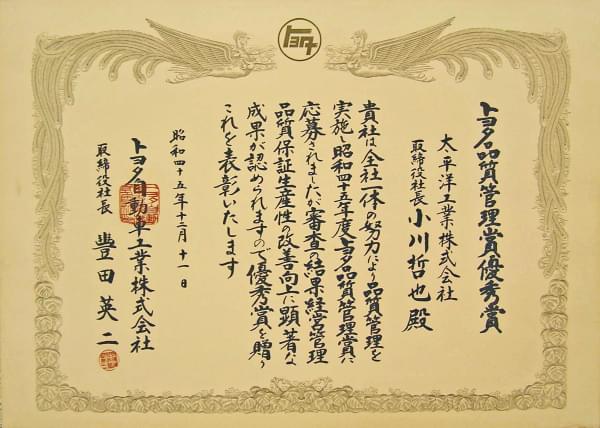 トヨタ
トヨタ品質管理賞優秀賞
太平洋工業株式会社
取締役社長 小川哲也殿
貴社は全社一体の努力により品質管理を
実施し昭和四十五年度トヨタ品質管理賞に
応募されましたが審査の結果経営管理
品質保証生産性の改善向上に顕著な
成果が認められますので優秀賞を贈り
これを表彰いたします
昭和四十五年十二月十一日
トヨタ自動車工業株式会社
取締役社長 豊田英二